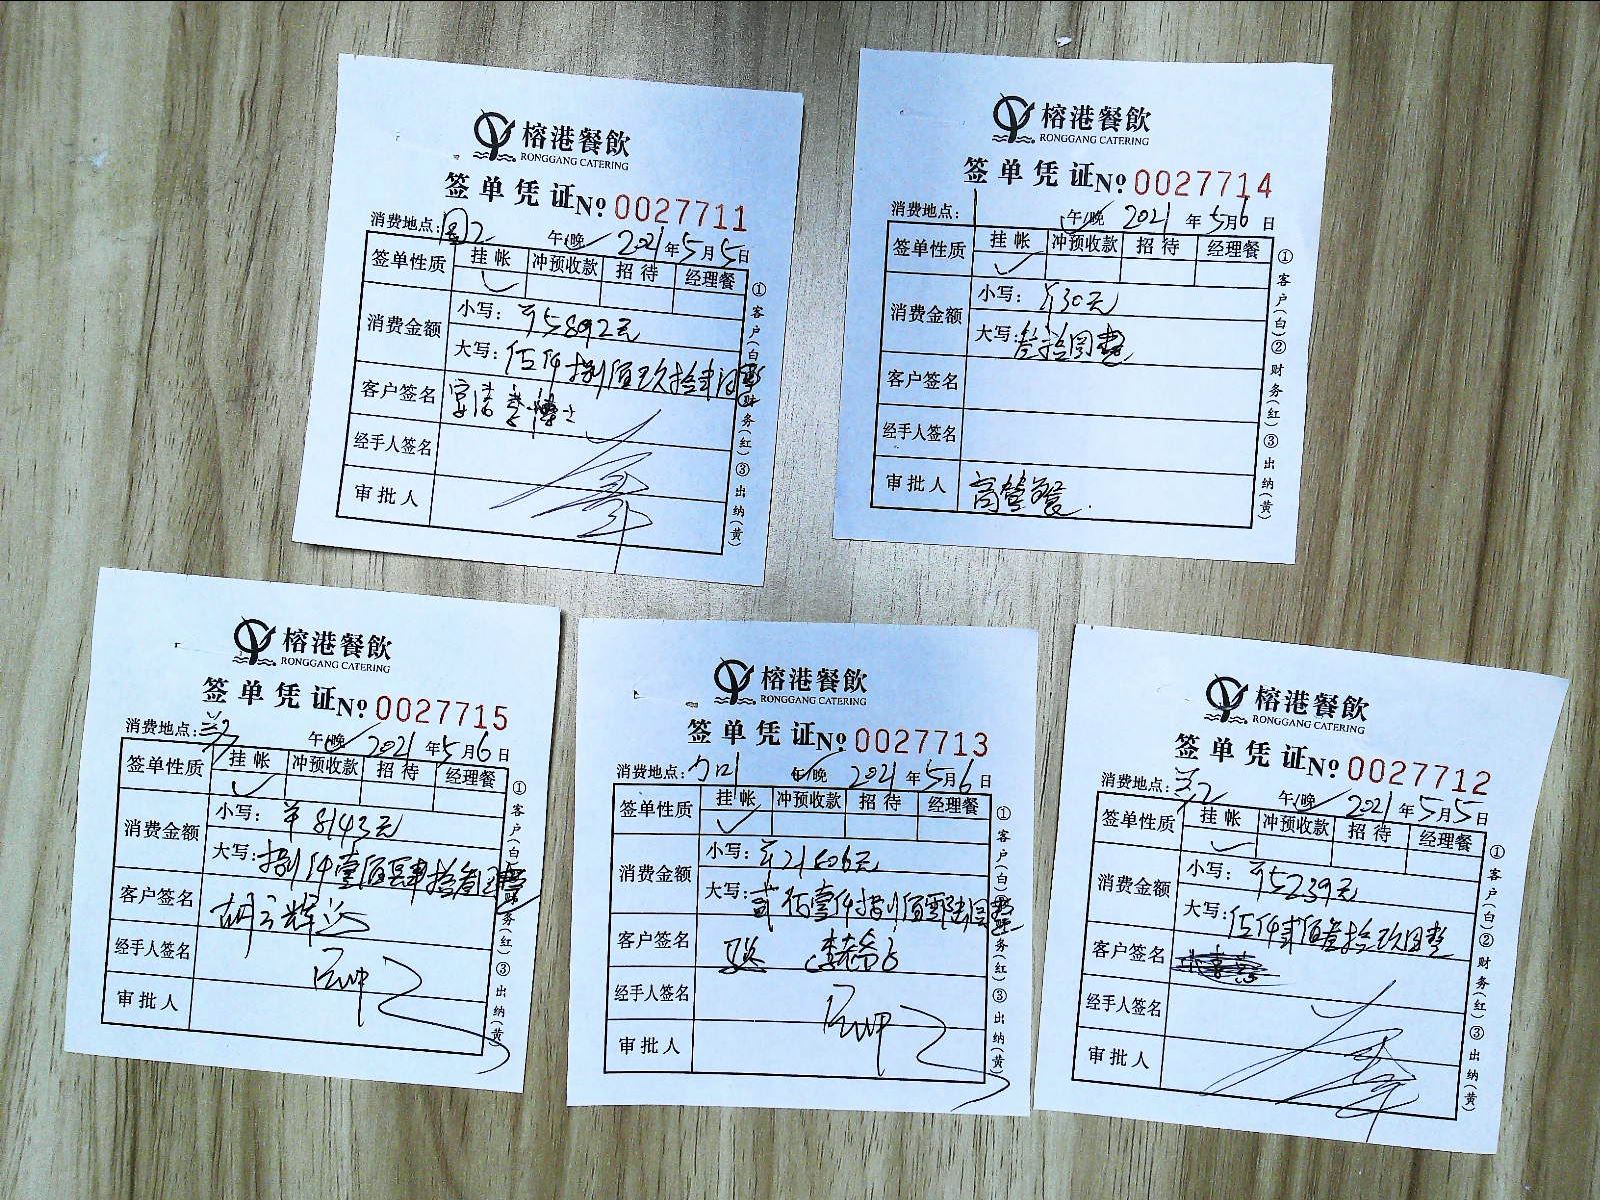 榕港餐飲
RONGGANG CATERING
签单凭证 No 0027711
消费地点: 午/晚 2021年5月5日
签单性质 挂帐 冲预收款 招待 经理餐
消费金额 小写: ¥5892元
大写: 伍仟捌佰玖拾贰圆整
客户签名
经手人签名
审批人
①客户(白)②财务(红)③出纳(黄)
榕港餐飲
RONGGANG CATERING
签单凭证 No 0027714
消费地点: 午/晚 2021年5月6日
签单性质 挂帐 冲预收款 招待 经理餐
消费金额 小写: ¥30元
大写: 叁拾圆整
客户签名
经手人签名
审批人 高管餐
①客户(白)②财务(红)③出纳(黄)
榕港餐飲
RONGGANG CATERING
签单凭证 No 0027715
消费地点: 午/晚 2021年5月6日
签单性质 挂帐 冲预收款 招待 经理餐
消费金额 小写: ¥8143元
大写: 捌仟壹佰肆拾叁圆整
客户签名
经手人签名
审批人
①客户(白)②财务(红)③出纳(黄)
榕港餐飲
RONGGANG CATERING
签单凭证 No 0027713
消费地点: 午/晚 2021年5月6日
签单性质 挂帐 冲预收款 招待 经理餐
消费金额 小写: ¥21806元
大写:
客户签名
经手人签名
审批人
①客户(白)②财务(红)③出纳(黄)
榕港餐飲
RONGGANG CATERING
签单凭证 No 0027712
消费地点: 午/晚 2021年5月5日
签单性质 挂帐 冲预收款 招待 经理餐
消费金额 小写: ¥5239元
大写: 伍仟贰佰叁拾玖圆整
客户签名
经手人签名
审批人
①客户(白)②财务(红)③出纳(黄)